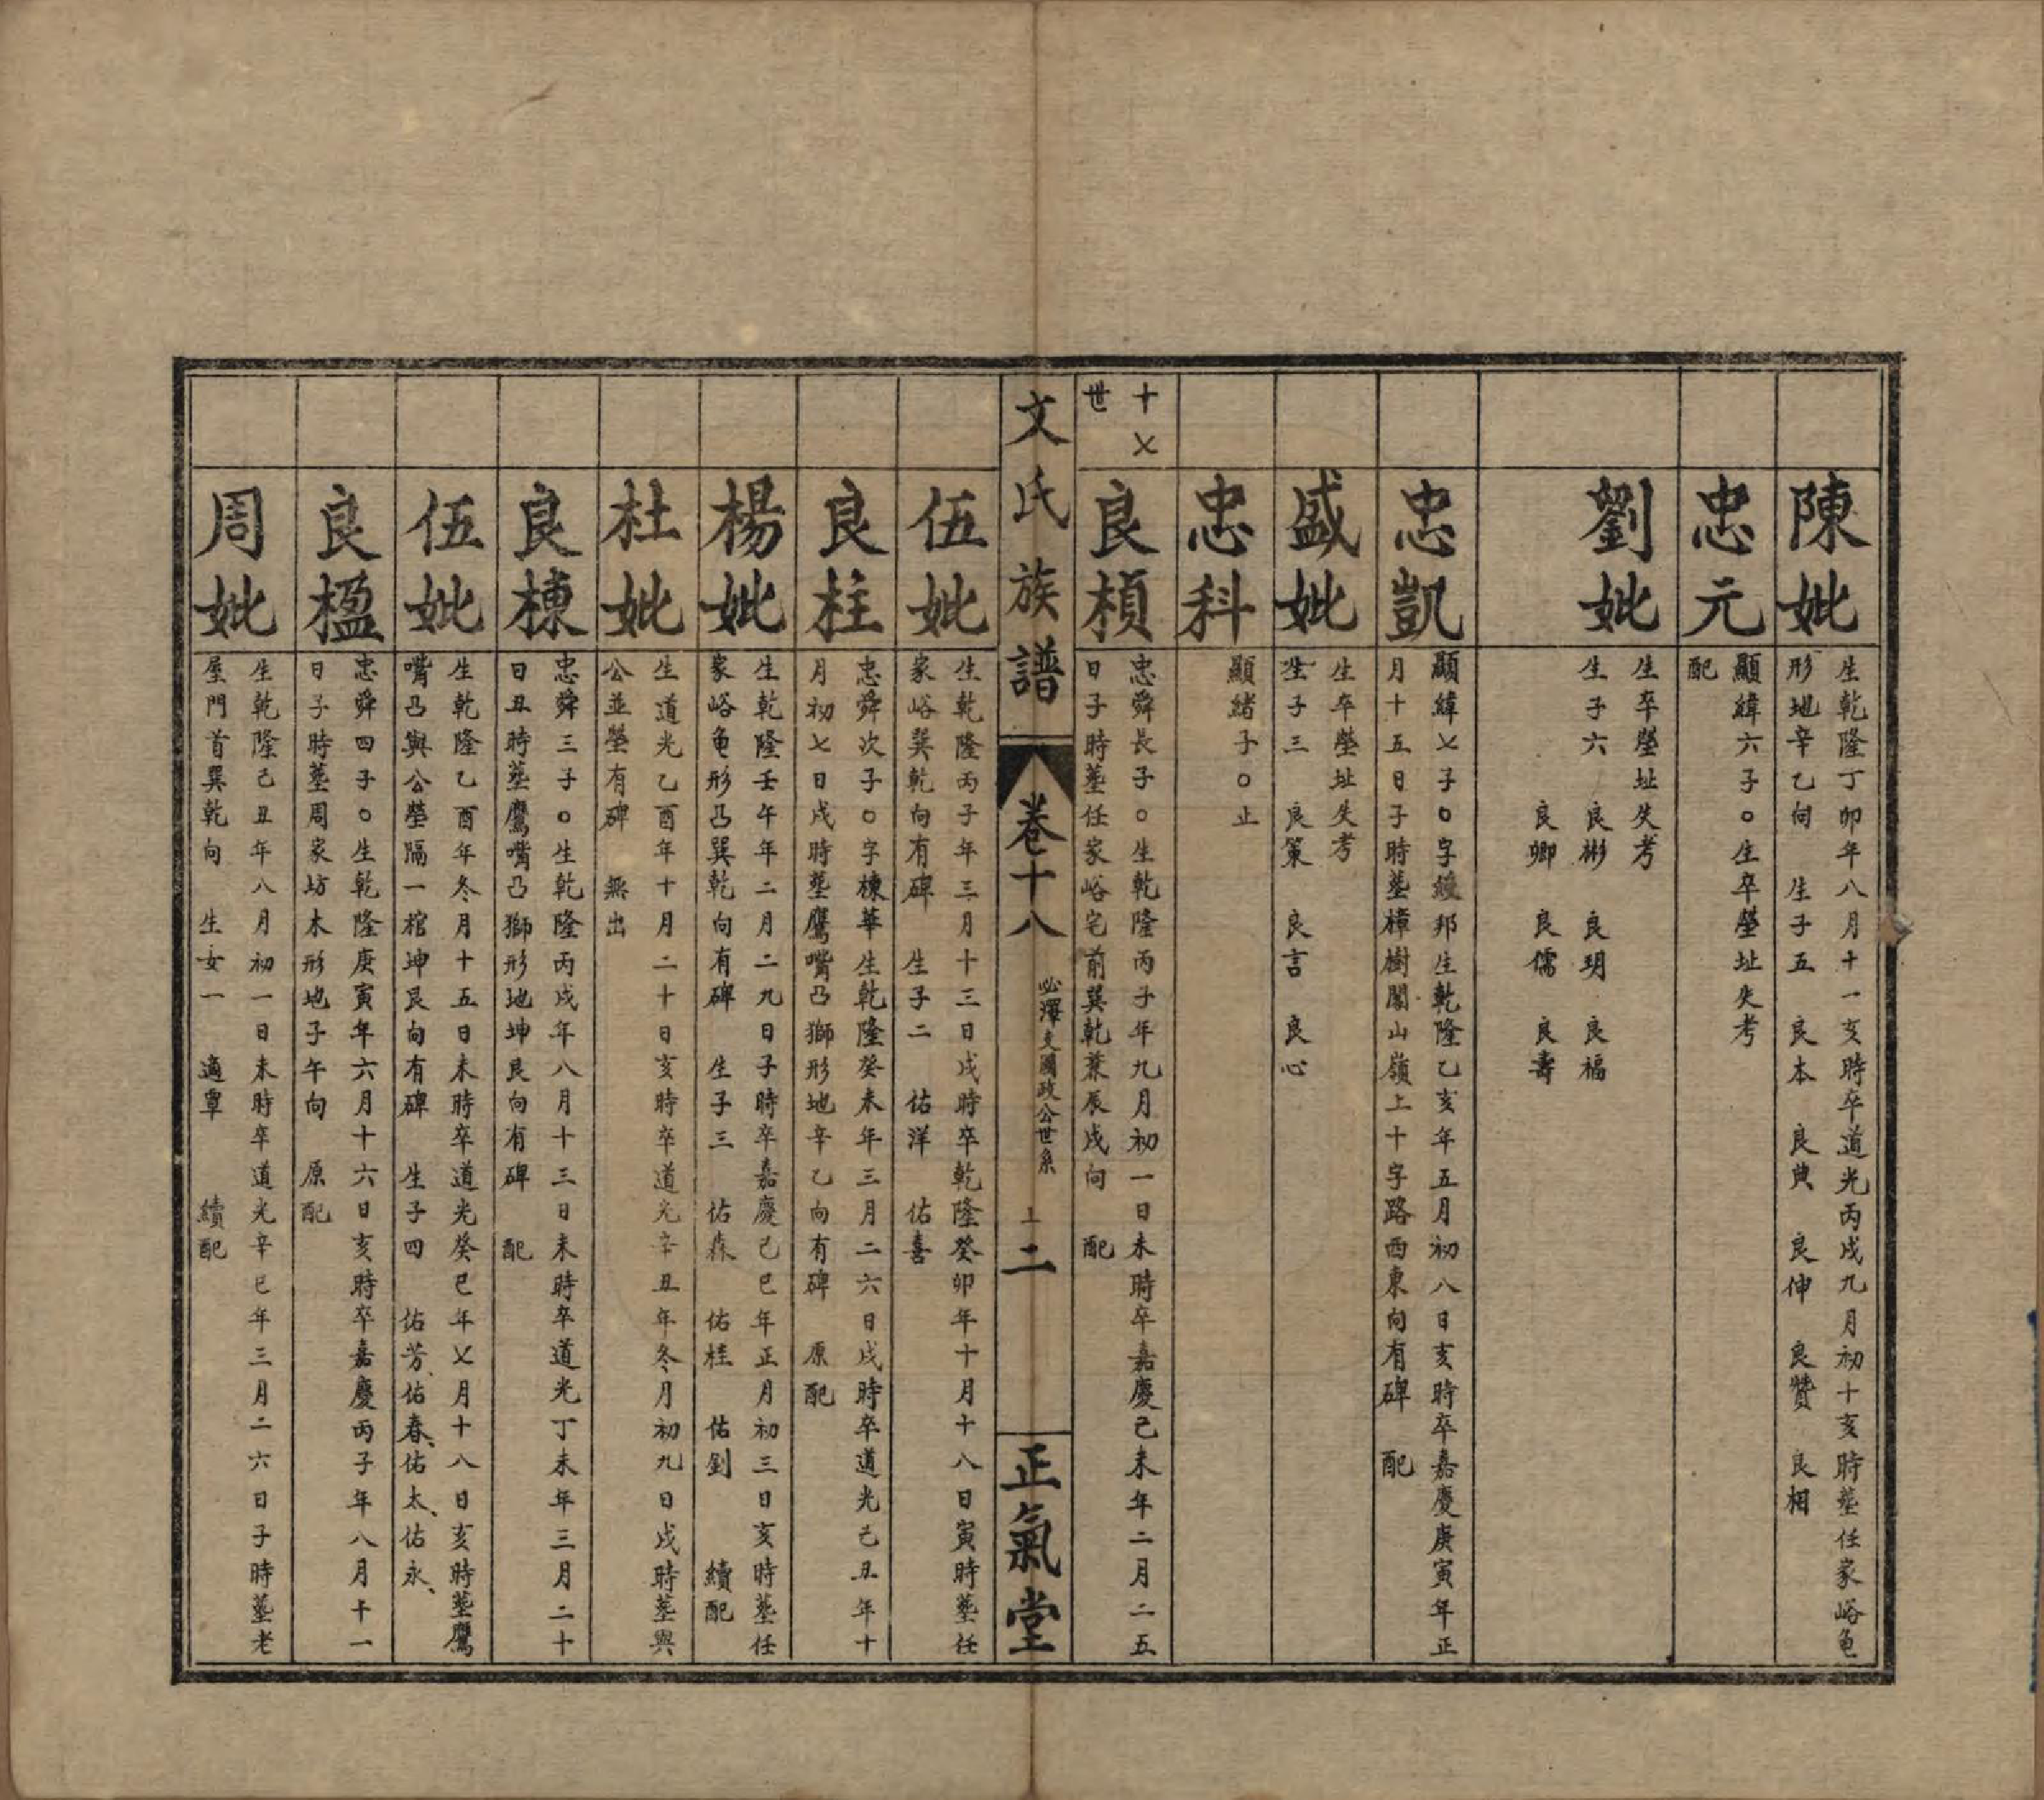 陳妣
生乾隆丁卯年八月十一亥時卒道光丙戌九月初十亥時塟任家峪龟
形地辛乙向 生子五 良本 良典 良伸 良贊 良相
忠元
顯緯六子○生卒塋址失考
配
劉妣
生卒塋址失考
生子六 良彬 良玥 良福
良卿 良儒 良壽
忠凱
顯緯乂子○字綬邦生乾隆乙亥年五月初八日亥時卒嘉慶庚寅年正
月十五日子時塟樟樹闇山嶺上十字路西東向有碑 配
盛妣
生卒塋址失考
生子三 良策 良言 良心
忠科
顯緒子○止
十乂
世
良楨
忠舜長子○生乾隆丙子年九月初一日未時卒嘉慶己未年二月二五
日子時塟任家峪宅前巽乾兼辰戌向 配
文氏族譜
卷十八
必澤支國政公世系
上二
正氣堂
伍妣
生乾隆丙子年三月十三日戌時卒乾隆癸卯年十月十八日寅時塟任
家峪巽乾向有碑 生子二 佑洋 佑喜
良柱
忠舜次子○字棟華生乾隆癸未年三月二六日戌時卒道光己丑年十
月初乂日戌時塟鷹嘴凸獅形地辛乙向有碑 原配
楊妣
生乾隆壬午年二月二九日子時卒嘉慶己巳年正月初三日亥時塟任
家峪龟形凸巽乾向有碑 生子三 佑森 佑桂 佑釗 續配
杜妣
生道光乙酉年十月二十日亥時卒道光辛丑年冬月初九日戌時塟與
公並塋有碑 無出
良棟
忠舜三子○生乾隆丙戌年八月十三日未時卒道光丁未年三月二十
日丑時塟鷹嘴凸獅形地坤艮向有碑 配
伍妣
生乾隆乙酉年冬月十五日未時卒道光癸巳年乂月十八日亥時塟鷹
嘴凸與公塋隔一棺坤艮向有碑 生子四 佑芳、佑春、佑太、佑永、
良楹
忠舜四子○生乾隆庚寅年六月十六日亥時卒嘉慶丙子年八月十一
日子時塟周家坊木形地子午向 原配
周妣
生乾隆己丑年八月初一日未時卒道光辛巳年三月二六日子時塟老
屋門首巽乾向 生女一 適覃 續配